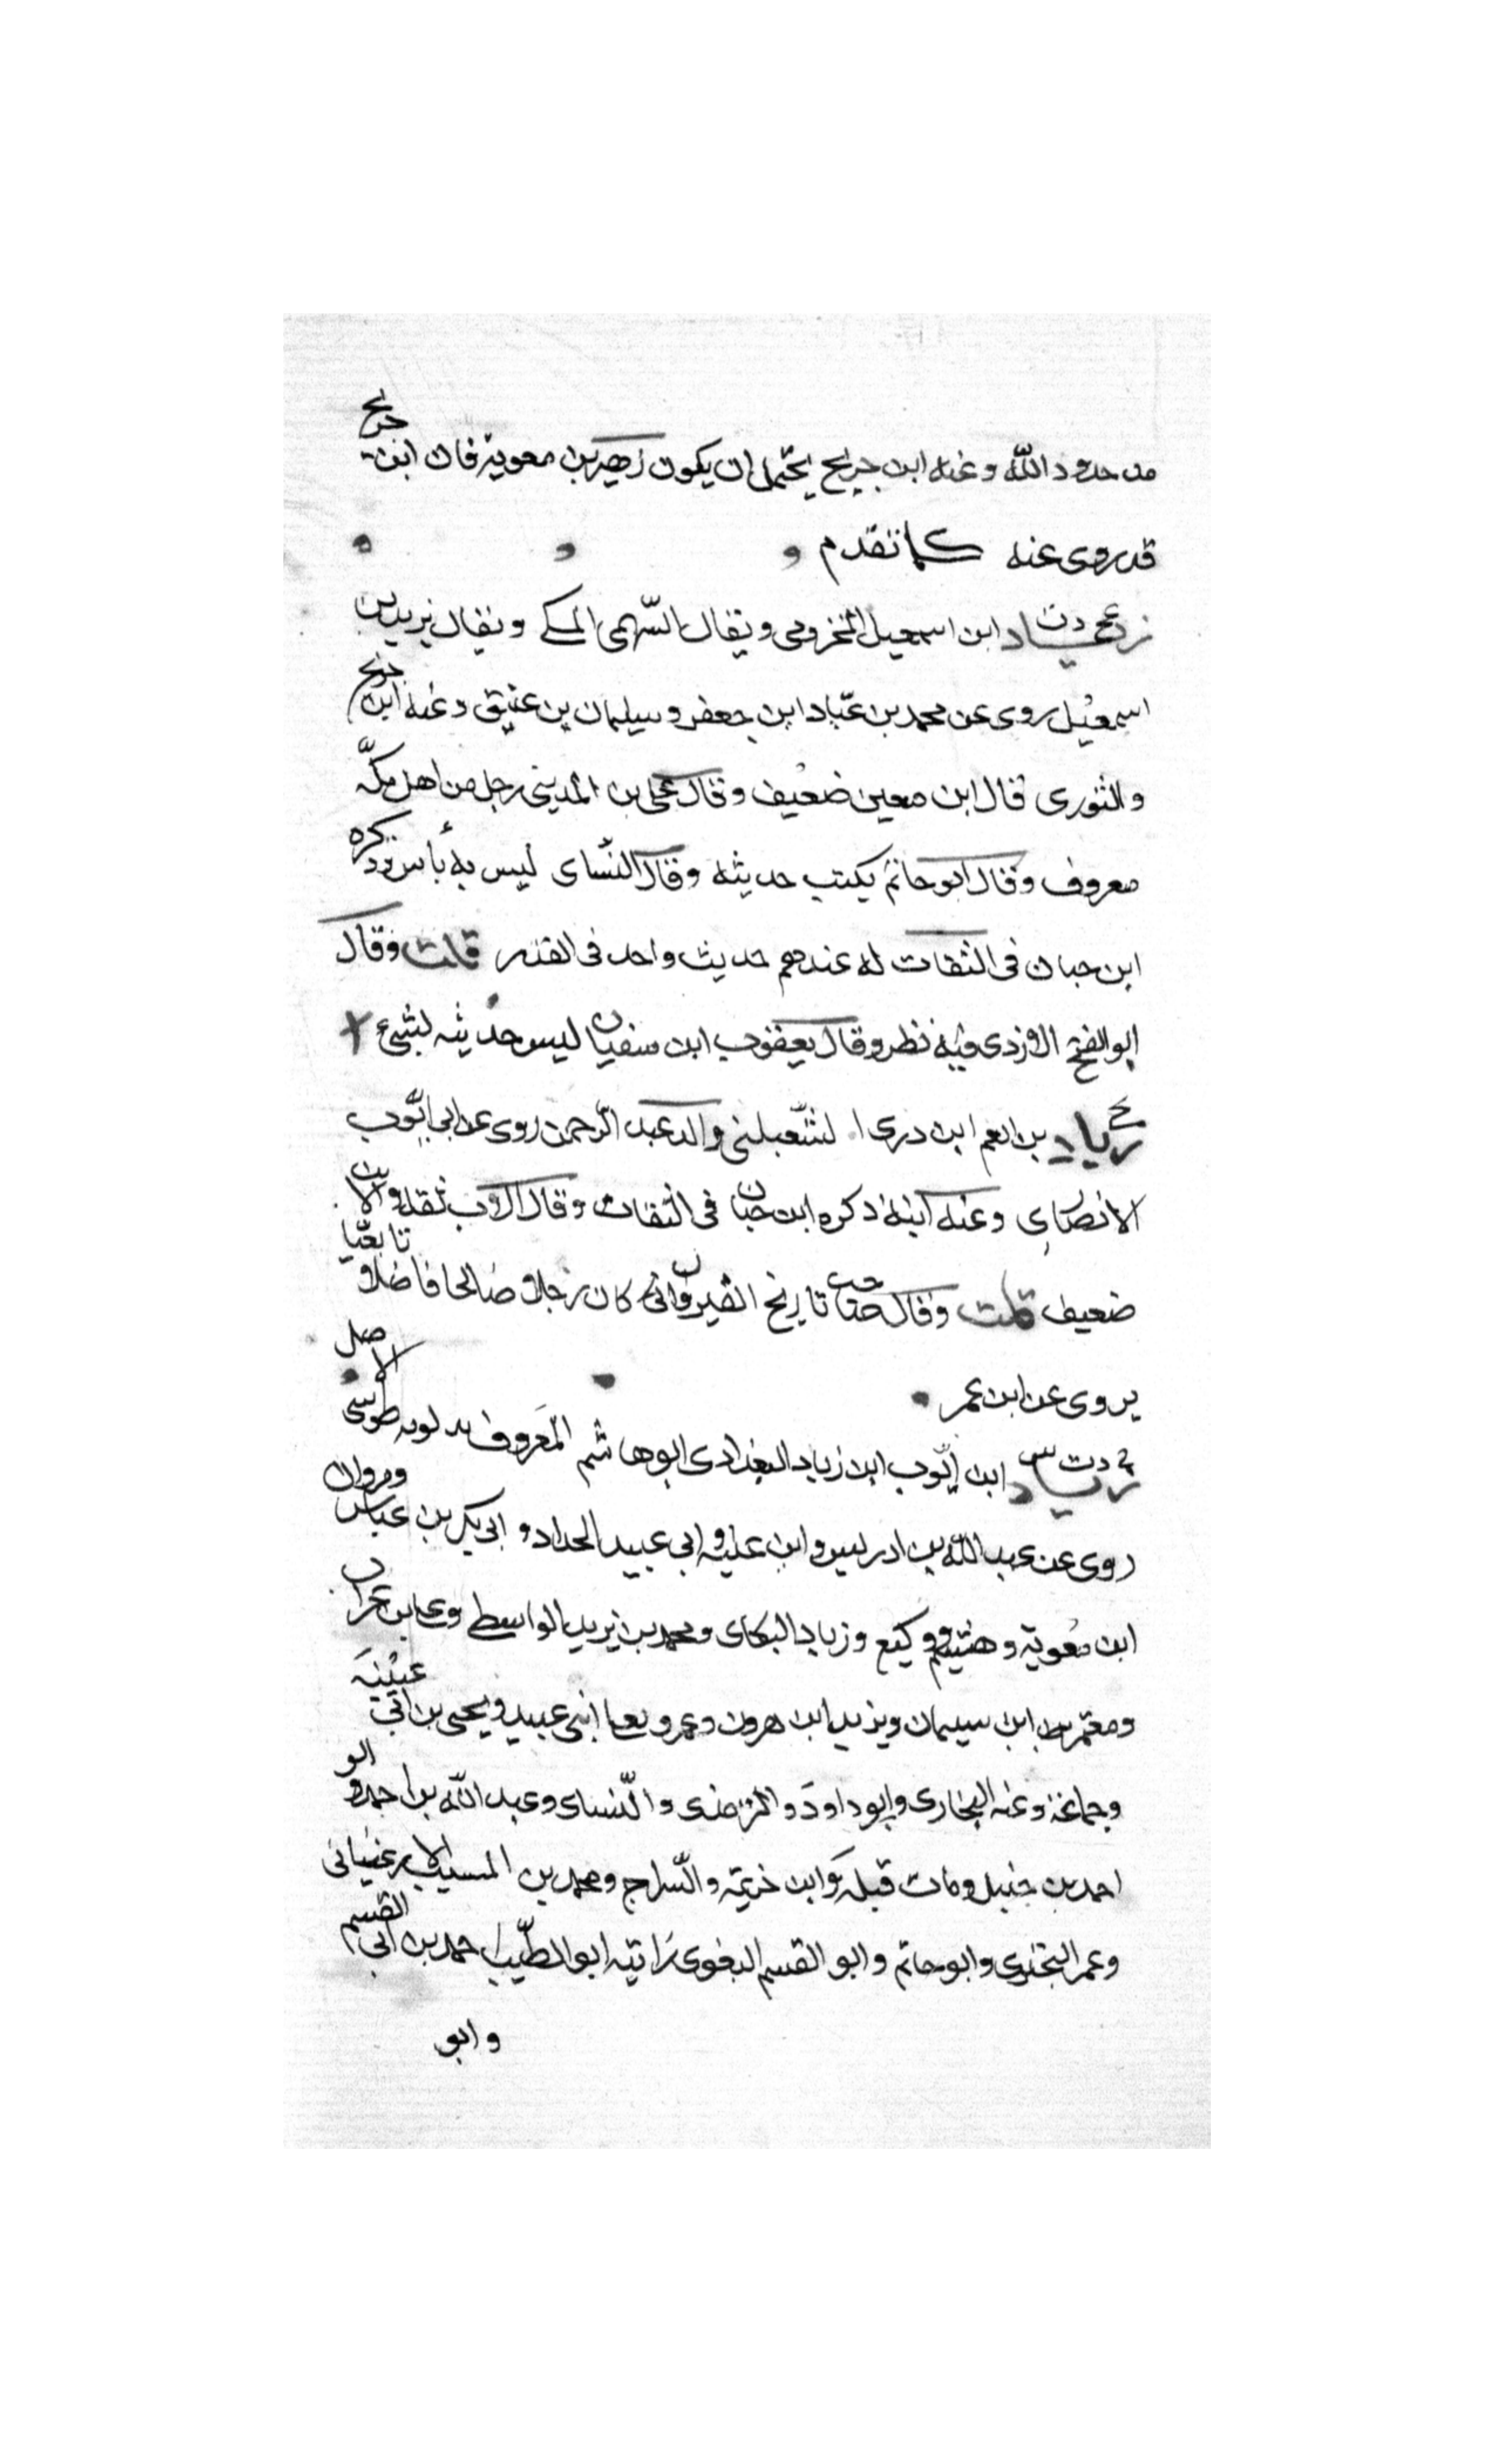 من حدود الله وعنه ابن جريج يحتمل ان يكون زهير بن معوية فان ابن جريج
قد روى عنه كما تقدم
دت زياد ابن اسمعيل المخزومى ويقال السّهمى المكى ويقال يزيد بن
اسمعيل روى عن محمد بن عبّاد ابن جعفر وسليمان بن عتيق وعنه ابن جريج
والثورى قال ابن معين ضعيف وقال على بن المدينى رجل من اهل مكّه
معروف وقال ابو حاتم يكتب حديثه وقال النّساى ليس به بأس وذكره
ابن حبان فى الثقات له عندهم حديث واحد فى القدر قلت وقال
ابو الفتح الازدى فيه نظر وقال يعقوب ابن سفيان ليس حديثه بشئ
زياد بن انعم ابن ذرى الشّعبانى والد عبد الرّحمن روى عن ابى ايّوب
الانصارى وعنه ابنه ذكره ابن حبان فى الثقات وقال ثقه والابن
ضعيف قلت وقال صاحب تاريخ القيروان كان رجلا صالحا فاضلا تابعيّا
يروى عن ابن عمر
خ دت س زياد ابن ايّوب ابن زياد البغدادى ابوهاشم المعروف بدلويه طوسى الاصل
روى عن عبد الله بن ادريس وابن عليه وابى عبيد الحداد و ابى بكر بن عياش ومروان
ابن معوية وهشيم ووكيع وزياد البكاى ومحمد بن يزيد الواسطى وعلى بن غراب
ومعتمر ابن سليمان ويزيد ابن هرون وعمر ويعلى ابنى عبيد ويحيى بن ابى عيينة
وجماعة وعنه البخارى وابو داود والترمذى والنّساى وعبد الله بن احمد وابو
احمد بن حنبل ومات قبله وابن خزيمه والسّراج ومحمد بن المسيب الارغيانى
وعمر البجيرى وابو حاتم وابو القسم البغوى ابو الطّيب احمد بن ابى القسم
وابو